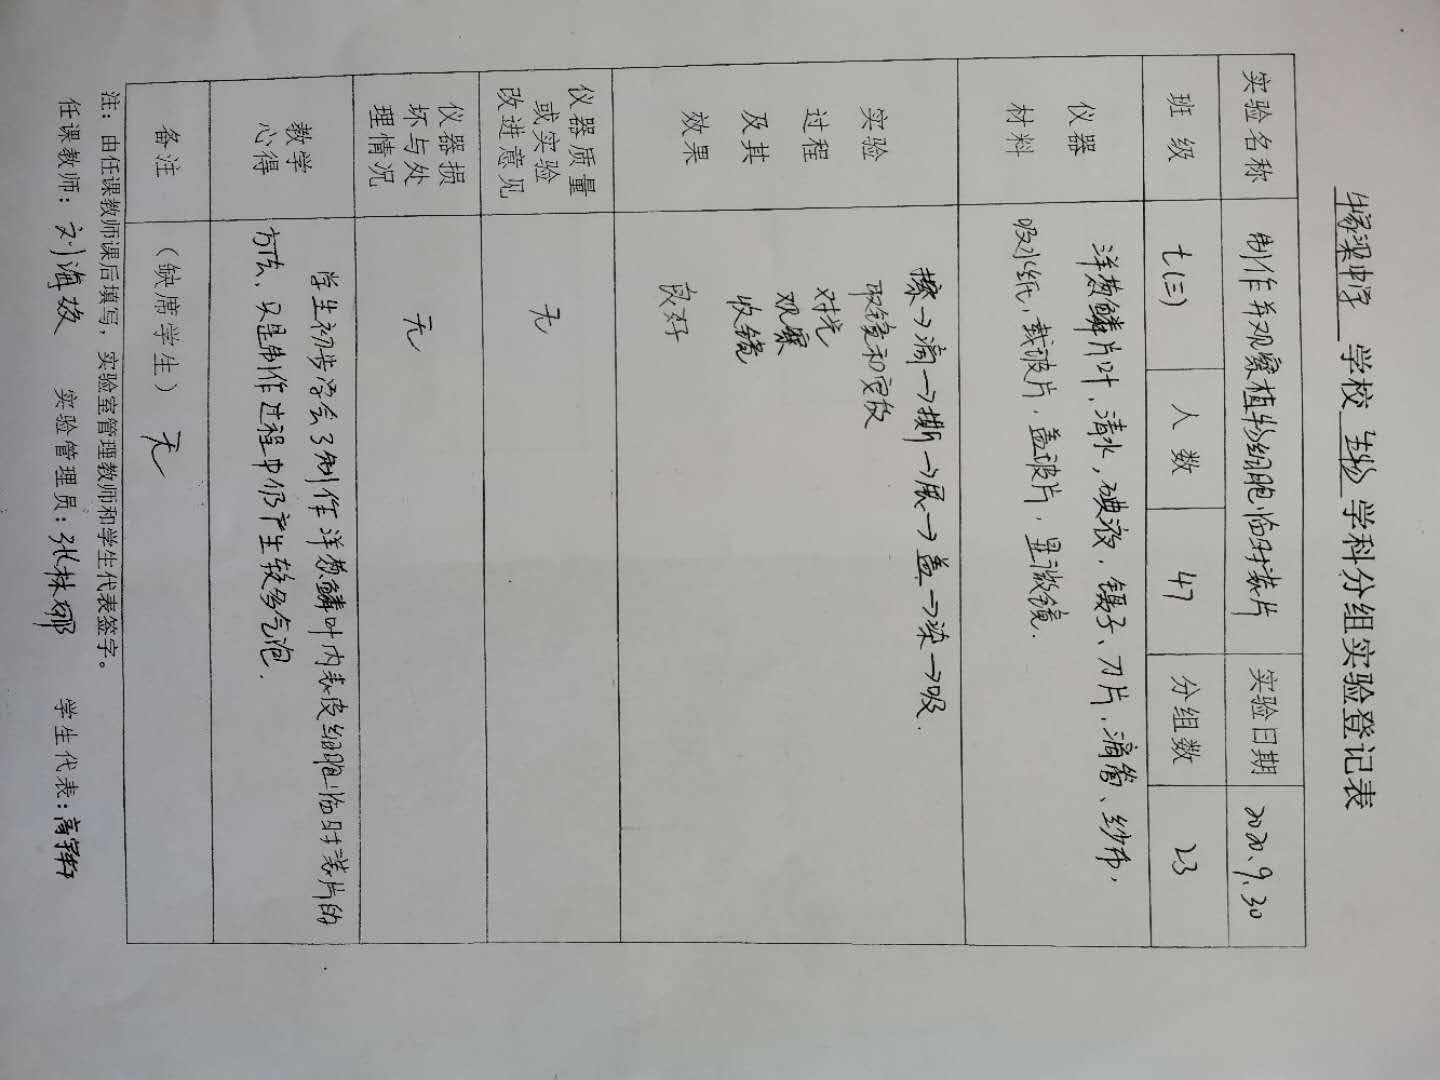 牛家梁中学 学校 生物 学科分组实验登记表
实验名称 制作并观察植物细胞临时装片 实验日期 2020.9.30
班级 七(三) 人数 47 分组数 23
仪器
材料
洋葱鳞片叶,清水,碘液,镊子、刀片、滴管、纱布,
吸水纸,载玻片,盖玻片,显微镜.
实验
过程
及其
效果
擦→滴→撕→展→盖→染→吸.
取镜和安放
对光
观察
收镜
良好
仪器质量
或实验
改进意见
无
仪器损
坏与处
理情况
无
教学
心得
学生初步学会了制作洋葱鳞叶内表皮细胞临时装片的
方法、只是制作过程中仍产生较多气泡.
备注 (缺席学生) 无
注:由任课教师课后填写,实验室管理教师和学生代表签字。
任课教师:刘海 实验管理员:张林娜 学生代表:高